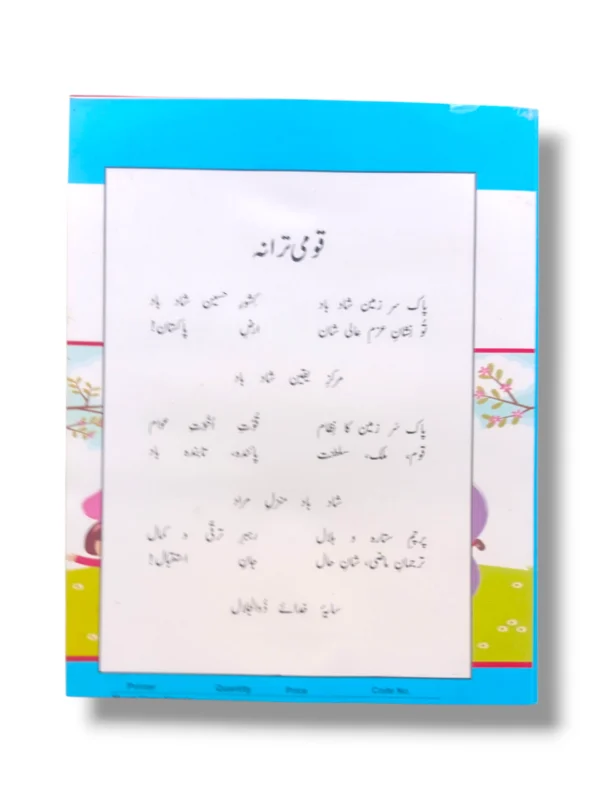 قومی ترانہ
پاک سر زمین شاد باد کشورِ حسین شاد باد
تُو نشانِ عزمِ عالی شان ارضِ پاکستان!
مرکزِ یقین شاد باد
پاک سر زمین کا نظام قُوّتِ اُخُوّتِ عوام
قوم، ملک، سلطنت پائندہ، تابندہ باد
شاد باد منزلِ مراد
پرچمِ ستارہ و ہلال رہبرِ ترقّی و کمال
ترجمانِ ماضی، شانِ حال جانِ استقبال!
سایۂ خدائے ذُوالجلال
Printer Quantity Price Code No.